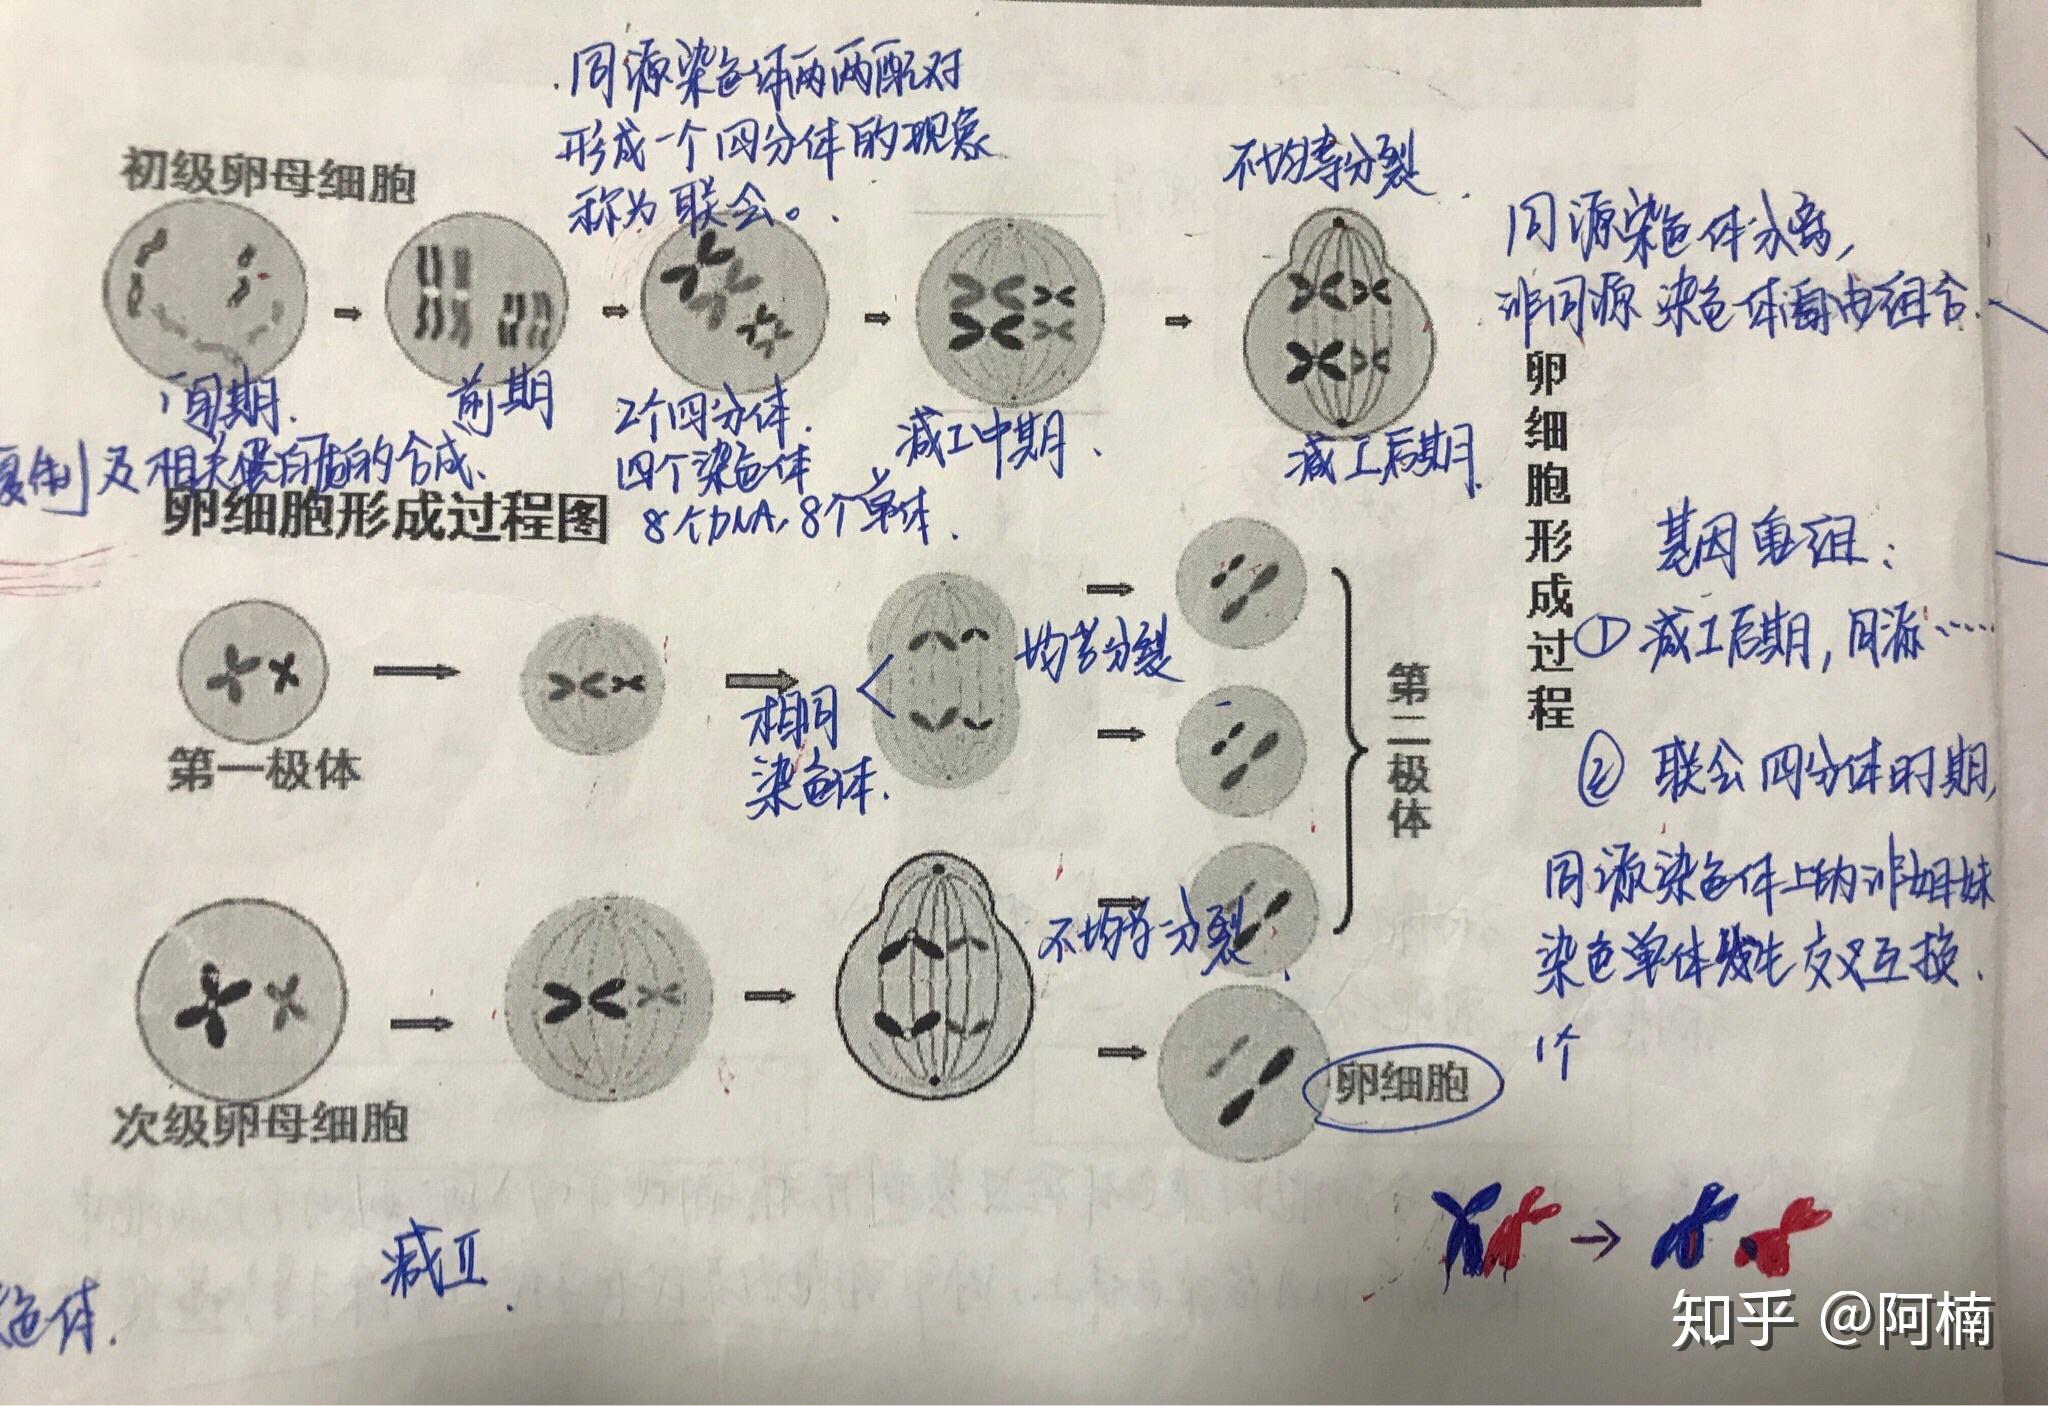 同源染色体两两配对
形成一个四分体的现象
称为联会。
初级卵母细胞
不均等分裂
同源染色体分离,
非同源染色体自由组合.
间期.
前期
2个四分体.
四个染色体
8个DNA,8个单体.
减I中期、
减I后期
复制及相关蛋白质的合成、
卵细胞形成过程图
卵细胞形成过程
基因重组:
①减I后期,同源……
②联会四分体时期,
同源染色体上的非姐妹
染色单体发生交叉互换.
1个
第一极体
相同
染色体.
均等分裂
第二极体
不均等分裂.
次级卵母细胞
卵细胞
减II.
色体.
知乎 @阿楠